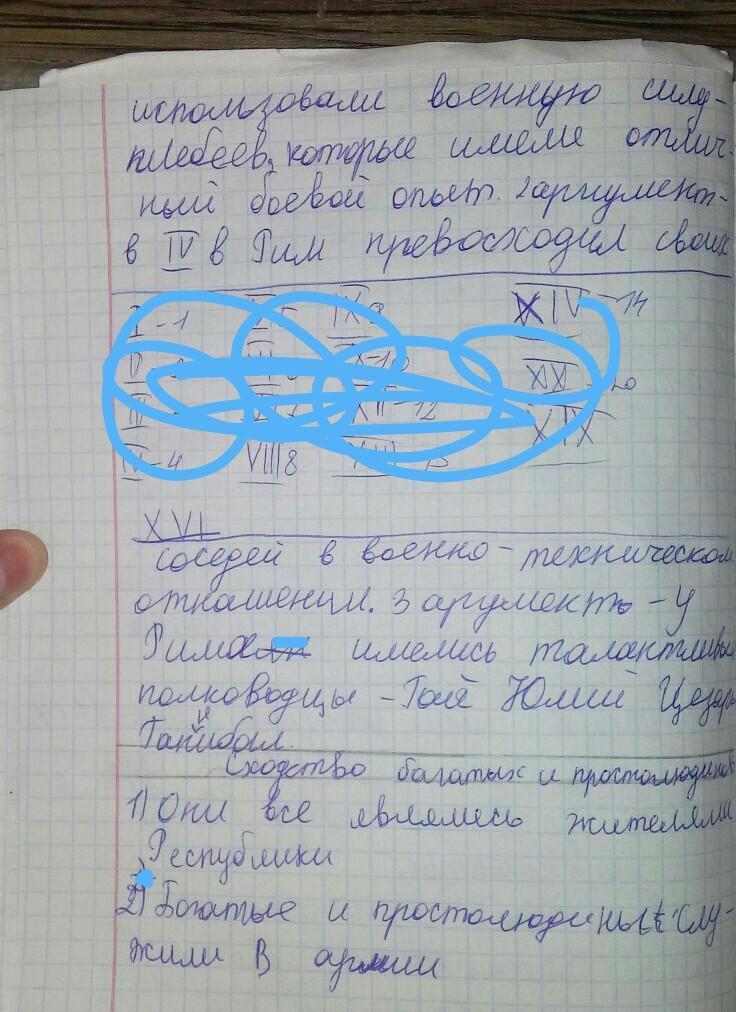 использовали военную силу-
плебеев, которые имели отлич-
ный боевой опыт. 2 аргумент-
в IV в Рим превосходил своих
I-1 IX 9 XIV-14
X-10 XX 20
XII-12 XIX
IV-4 VIII 8
XVI
соседей в военно-техническом
отнашении. 3 аргумент - У
Рима имелись талантливые
полководцы - Гай Юлий Цезарь
и
Ганибал.
Сходство богатых и простолюдинов
1) Они все являлись жителями
Республики
2) Богатые и простолюдины слу-
жили в армии